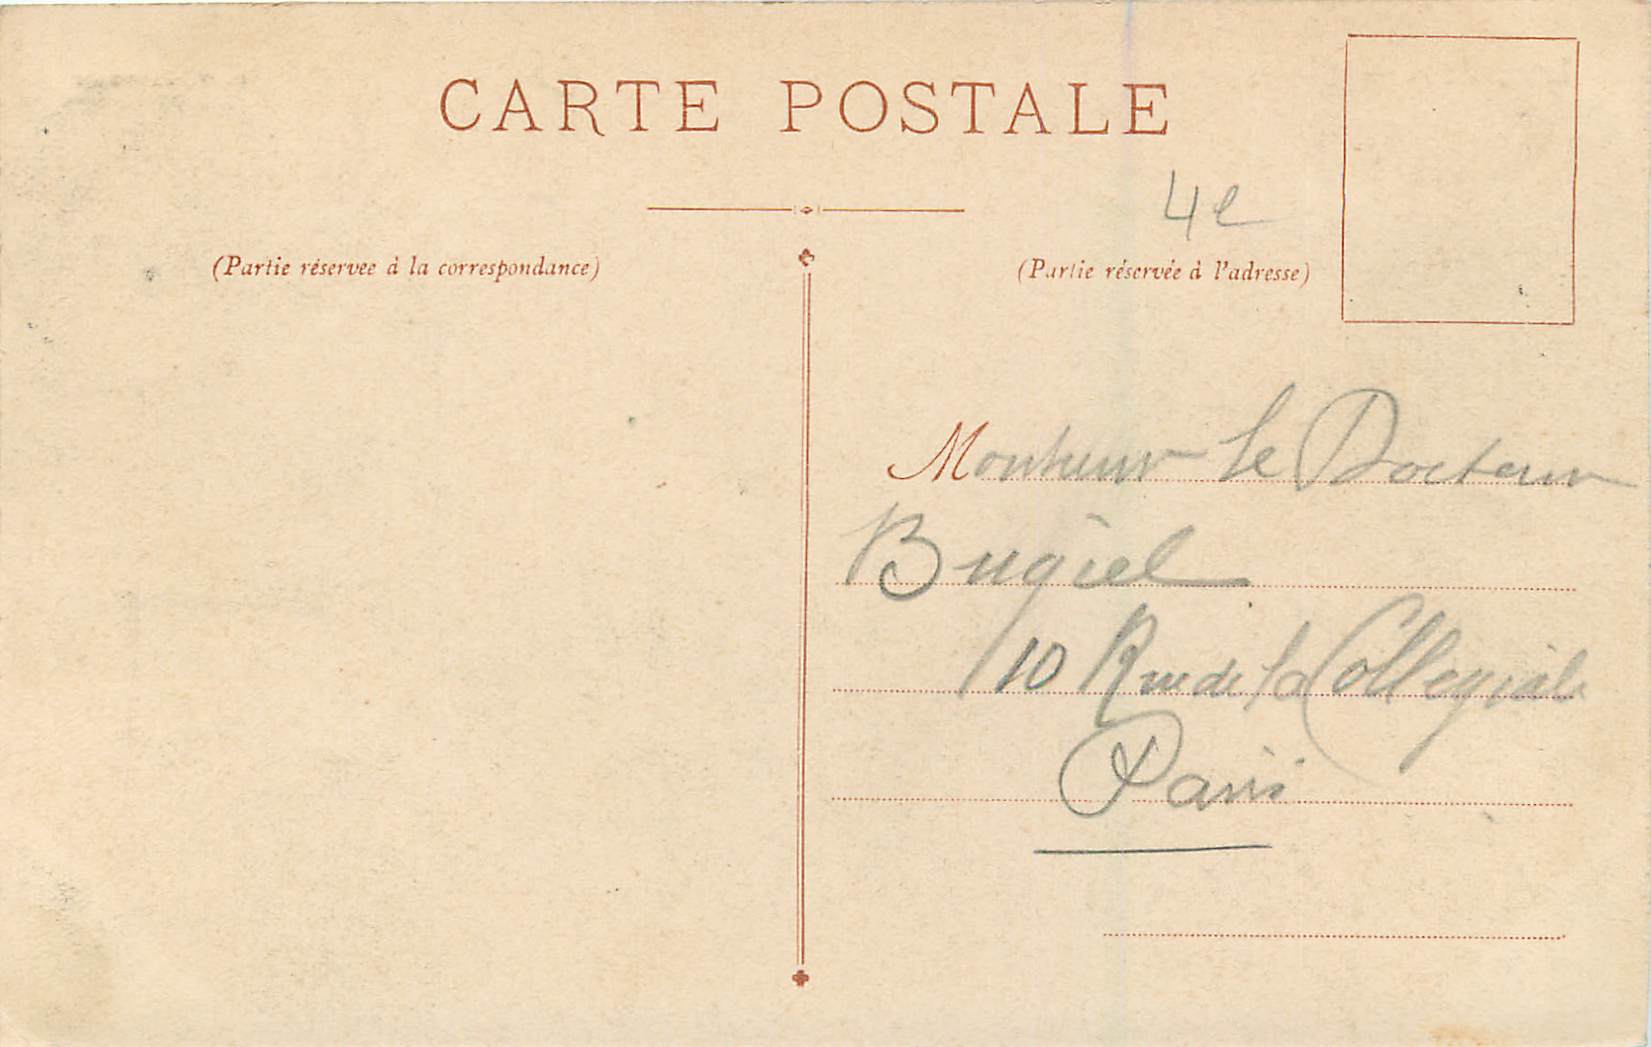 CARTE POSTALE
4e
(Partie réservee à la correspondance)
(Partie réservée à l'adresse)
Monsieur le Docteur
Bugiel
10 Rue de la Collegiale
Paris